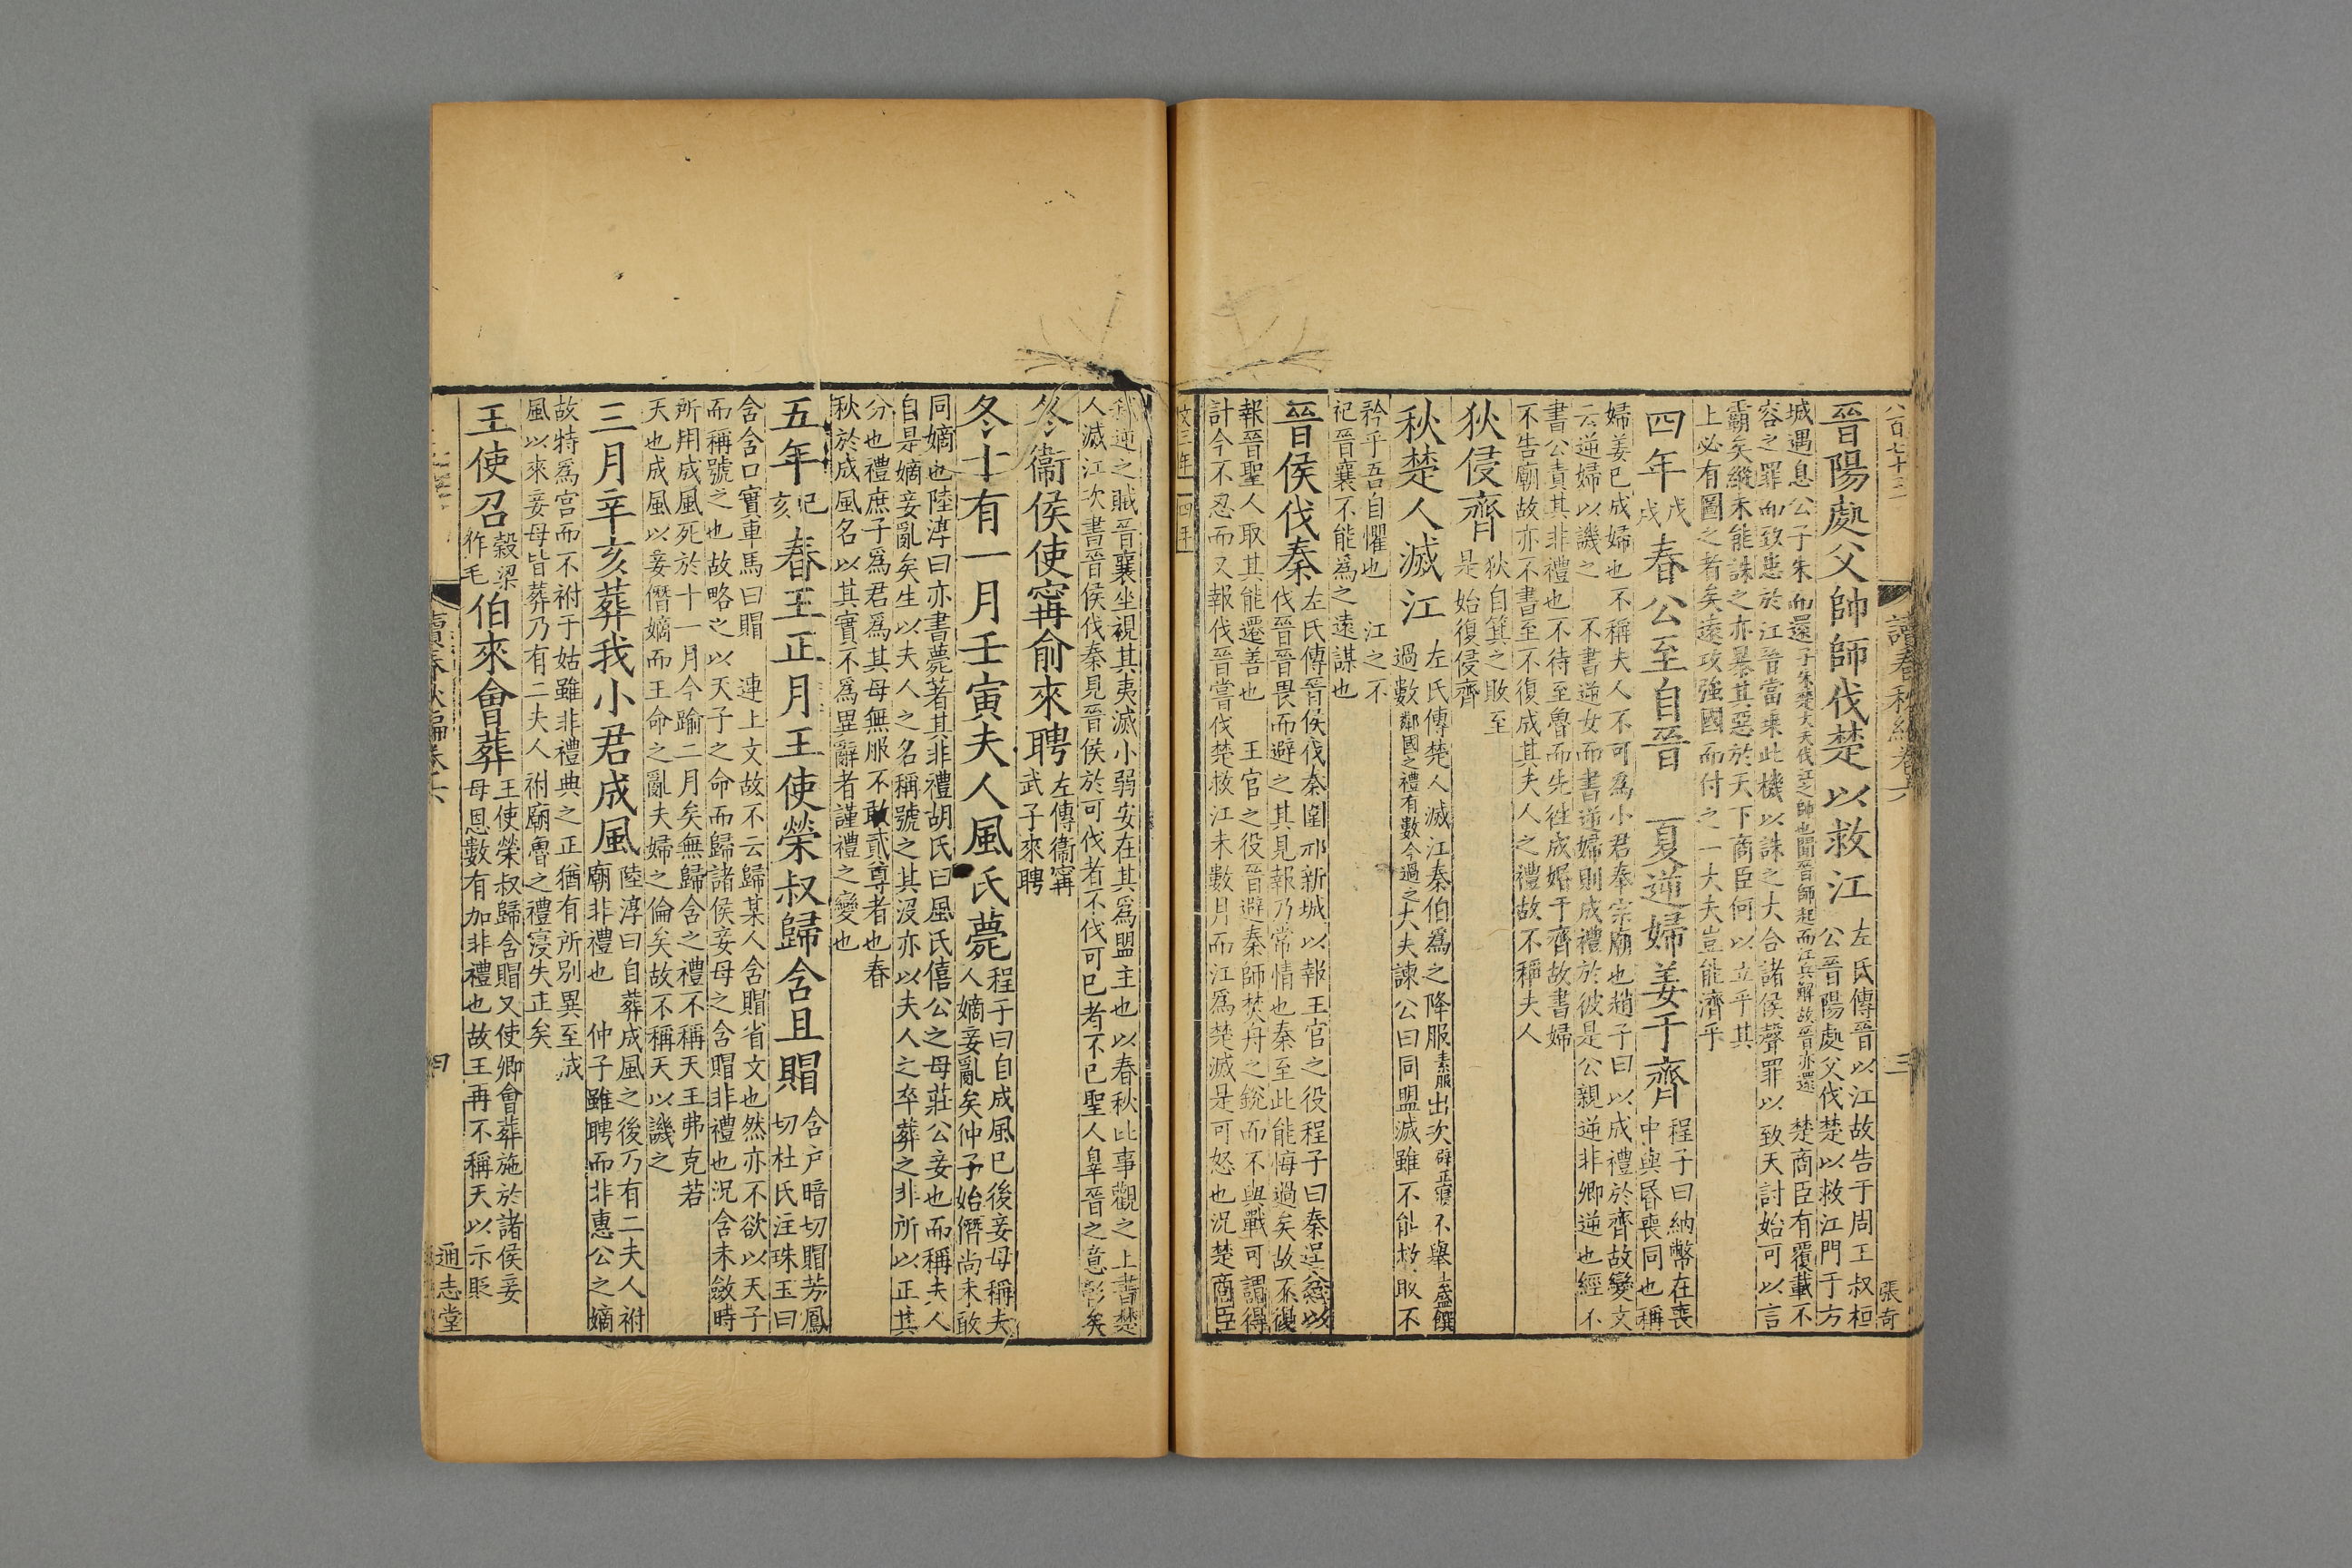 八百七十三
讀春秋編卷六
三
張奇
晉陽處父帥師伐楚以救江
左氏傳晉以江故告于周王叔桓
公晉陽處父伐楚以救江門于方
城遇息公子朱而還子朱楚大夫伐江之帥也聞晉師起而江兵解故晉亦還
楚商臣有覆載不
容之罪而致患於江晉當乗此機以誅之大合諸侯聲罪以致天討始可以言
霸矣縱未能誅之亦暴其惡於天下商臣何以立乎其
上必有圖之者矣遠攻強國而付之一大夫豈能濟乎
四年
戊
戌
春公至自晉
夏逆婦姜于齊
程子曰納幣在喪
中與昬喪同也稱
婦姜已成婦也不稱夫人不可爲小君奉宗廟也趙子曰以成禮於齊故變文
云逆婦以譏之 不書逆女而書逆婦則成禮於彼是公親逆非卿逆也經不
書公責其非禮也不待至魯而先徃成婚于齊故書婦
不告廟故亦不書至不復成其夫人之禮故不稱夫人
狄侵齊
狄自箕之敗至
是始復侵齊
秋楚人滅江
左氏傳楚人滅江秦伯爲之降服素服出次辟正寢不舉去盛饌
過數鄰國之禮有數今過之大夫諫公曰同盟滅雖不能救敢不
矜乎吾自懼也 江之不
祀晉襄不能爲之遠謀也
晉侯伐秦
左氏傳晉侯伐秦圍邧新城以報王官之役程子曰秦逞忿以
伐晉晉畏而避之其見報乃常情也秦至此能悔過矣故不復
報晉聖人取其能遷善也 王官之役晉避秦師焚舟之銳而不與戰可謂得
計今不忍而又報伐晉嘗伐楚救江未數月而江爲楚滅是可怒也況楚商臣
文三年 四年
弑逆之賊晉襄坐視其夷滅小弱安在其爲盟主也以春秋比事觀之上書楚
人滅江次書晉侯伐秦見晉侯於可伐者不伐可已者不已聖人辠晉之意彰矣
冬衞侯使甯俞來聘
左傳衞甯
武子來聘
冬十有一月壬寅夫人風氏薨
程子曰自成風已後妾母稱夫
人嫡妾亂矣仲子始僭尚未敢
同嫡也陸淳曰亦書薨著其非禮胡氏曰風氏僖公之母莊公妾也而稱夫人
自是嫡妾亂矣生以夫人之名稱號之其沒亦以夫人之卒葬之非所以正其
分也禮庶子爲君爲其母無服不敢貳尊者也春
秋於成風名以其實不爲異辭者謹禮之變也
五年
己
亥
春王正月王使榮叔歸含且賵
含户暗切賵芳鳳
切杜氏注珠玉曰
含含口實車馬曰賵 連上文故不云歸某人含賵省文也然亦不欲以天子
而稱號之也故略之以天子之命而歸諸侯妾母之含賵非禮也況含未斂時
所用成風死於十一月今踰二月矣無歸含之禮不稱天王弗克若
天也成風以妾僭嫡而王命之亂夫婦之倫矣故不稱天以譏之
三月辛亥葬我小君成風
陸淳曰自葬成風之後乃有二夫人祔
廟非禮也 仲子雖聘而非惠公之嫡
故特爲宫而不祔于姑雖非禮典之正猶有所別異至成
風以來妾母皆葬乃有二夫人祔廟魯之禮寖失正矣
王使召
穀梁
作毛
伯來會葬
王使榮叔歸含賵又使卿會葬施於諸侯妾
母恩數有加非禮也故王再不稱天以示貶
讀春秋編卷六
四
通志堂